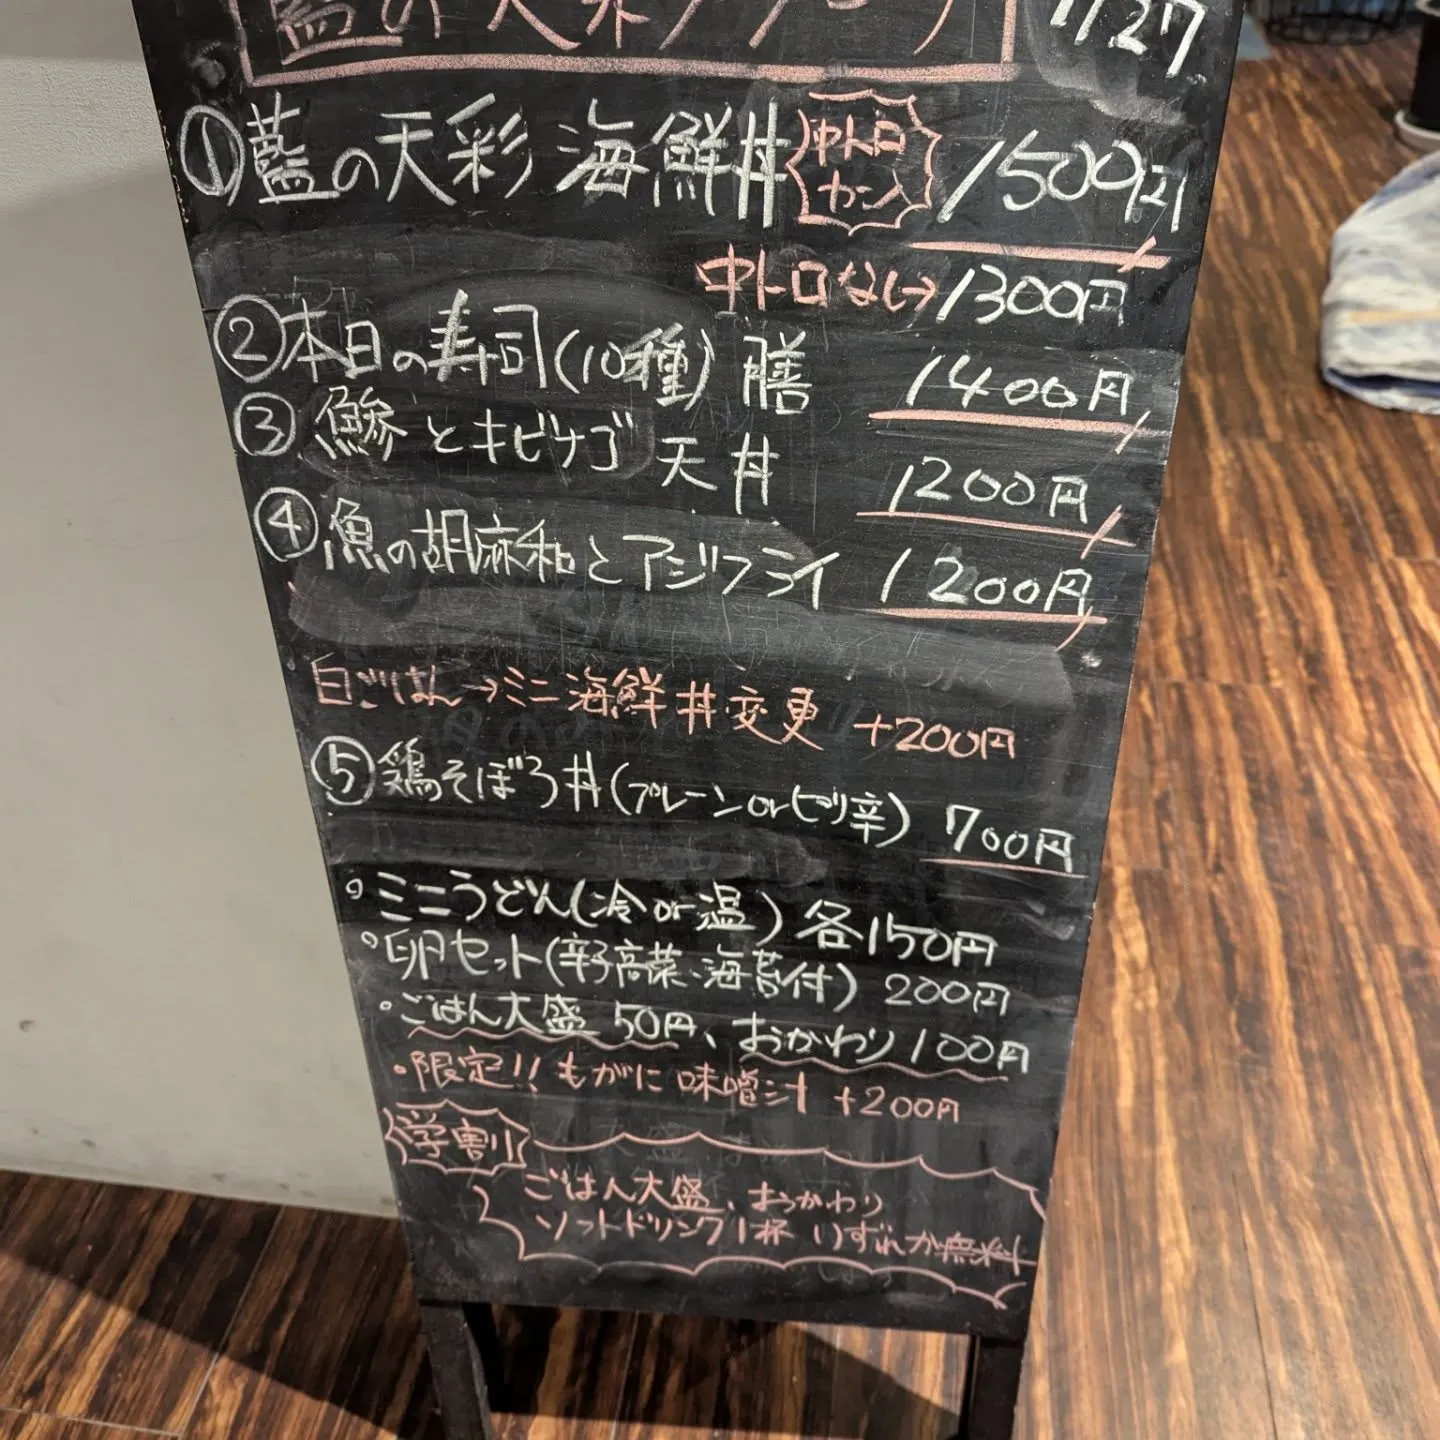 藍の天彩ランチ 1/27
①藍の天彩 海鮮丼 中トロカン 1500円
中トロなし→1300円
②本日の寿司(10種)膳 1400円
③鯵とキビナゴ 天丼 1200円
④魚の胡麻和とアジフライ 1200円
白ごはん→ミニ海鮮丼変更 +200円
⑤鶏そぼろ丼(プレーンorピリ辛) 700円
。ミニうどん(冷or温) 各150円
。卵セット(辛子高菜、海苔付) 200円
・ごはん大盛 50円、おかわり100円
。限定!! もがに味噌汁 +200円
学割
ごはん大盛、おかわり
ソフトドリンク1杯 いずれか無料